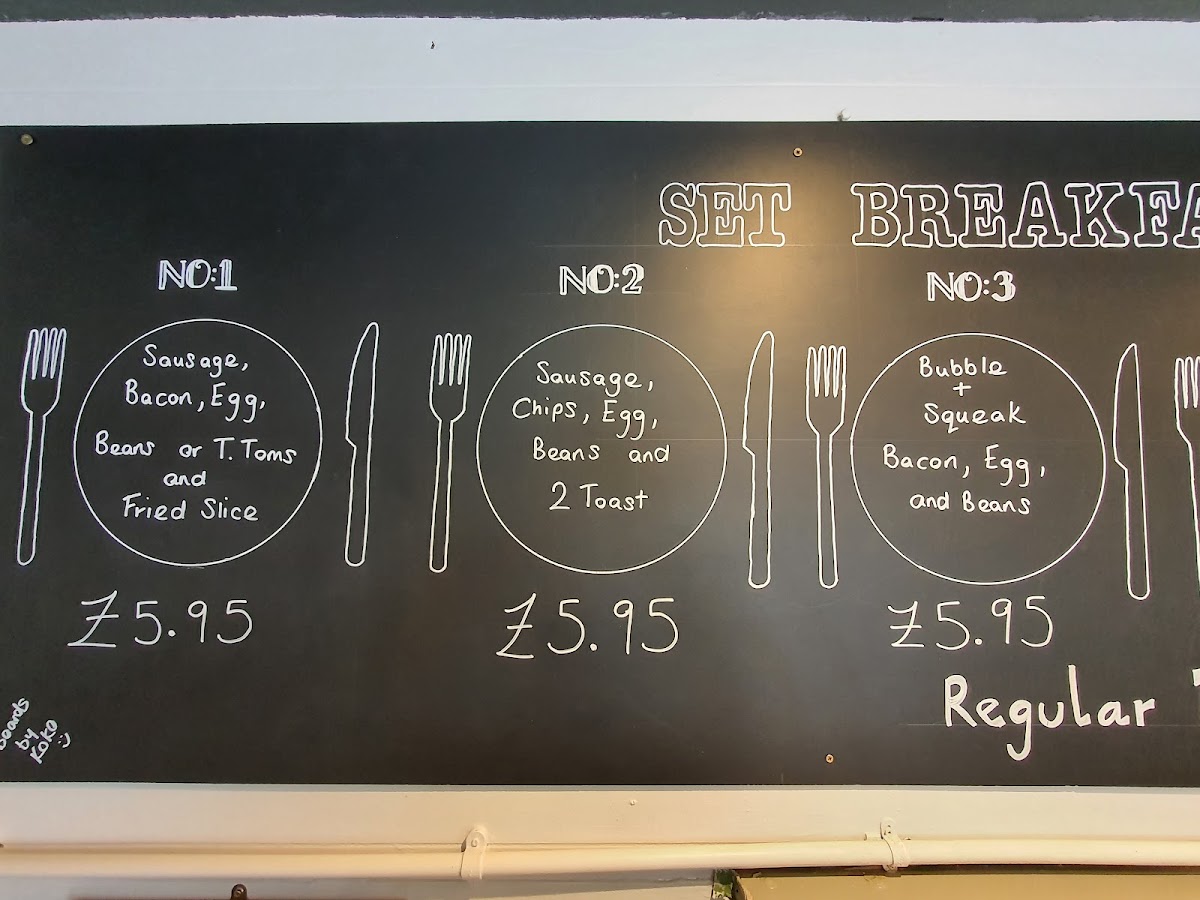 SET BREAKFA
NO:1
Sausage,
Bacon, Egg,
Beans or T.Toms
and
Fried Slice
£5.95
NO:2
Sausage,
Chips, Egg,
Beans and
2 Toast
£5.95
NO:3
Bubble
+
Squeak
Bacon, Egg,
and Beans
£5.95
Regular
boards
by
KoKo
:)